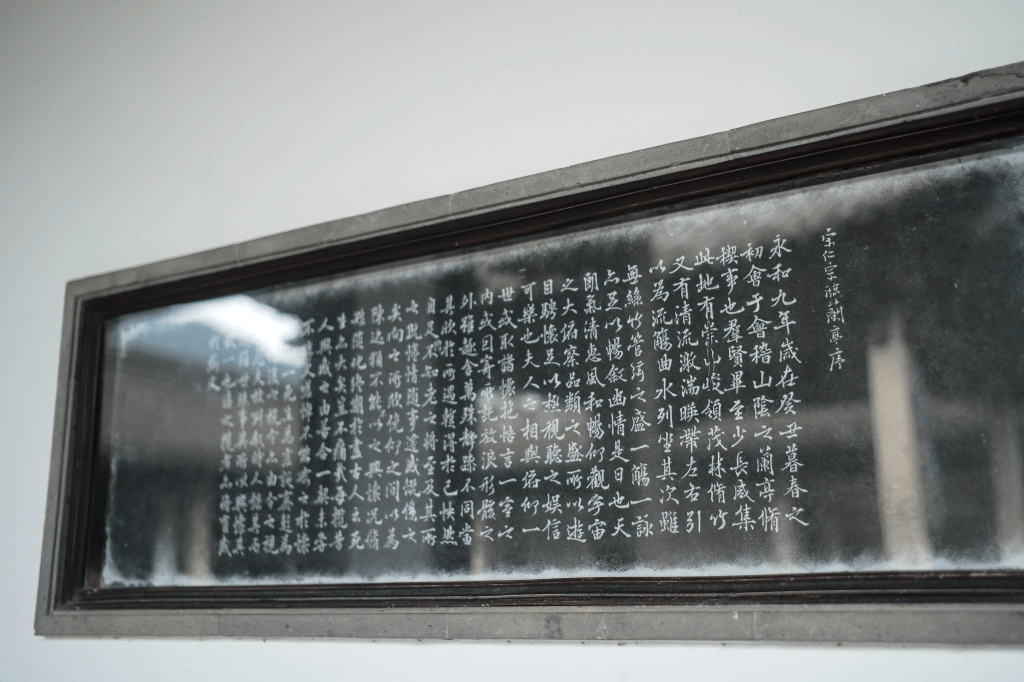 宋仁宗臨蘭亭序
永和九年歲在癸丑暮春之
初會于會稽山陰之蘭亭脩
稧事也羣賢畢至少長咸集
此地有崇山峻領茂林脩竹
又有清流激湍暎帶左右引
以為流觴曲水列坐其次雖
無絲竹管弦之盛一觴一詠
亦足以暢敘幽情是日也天
朗氣清惠風和暢仰觀宇宙
之大俯察品類之盛所以遊
目騁懷足以極視聽之娛信
可樂也夫人之相與俯仰一
世或取諸懷抱悟言一室之
內或因寄所託放浪形骸之
外雖趣舍萬殊靜躁不同當
其欣於所遇蹔得於己怏然
自足不知老之將至及其所
之既惓情隨事遷感慨係之
矣向之所欣俛仰之間以為
陳迹猶不能以之興懷況脩
短隨化終期於盡古人云死
生亦大矣豈不痛哉每攬昔
人興感之由若合一契未嘗
不臨文嗟悼不能喻之於懷
一死生為虛誕齊彭殤為
後之視今亦由今之視
悲夫故列敘時人錄其所
雖世殊事異所以興懷其
致一也後之攬者亦將有感
於斯文